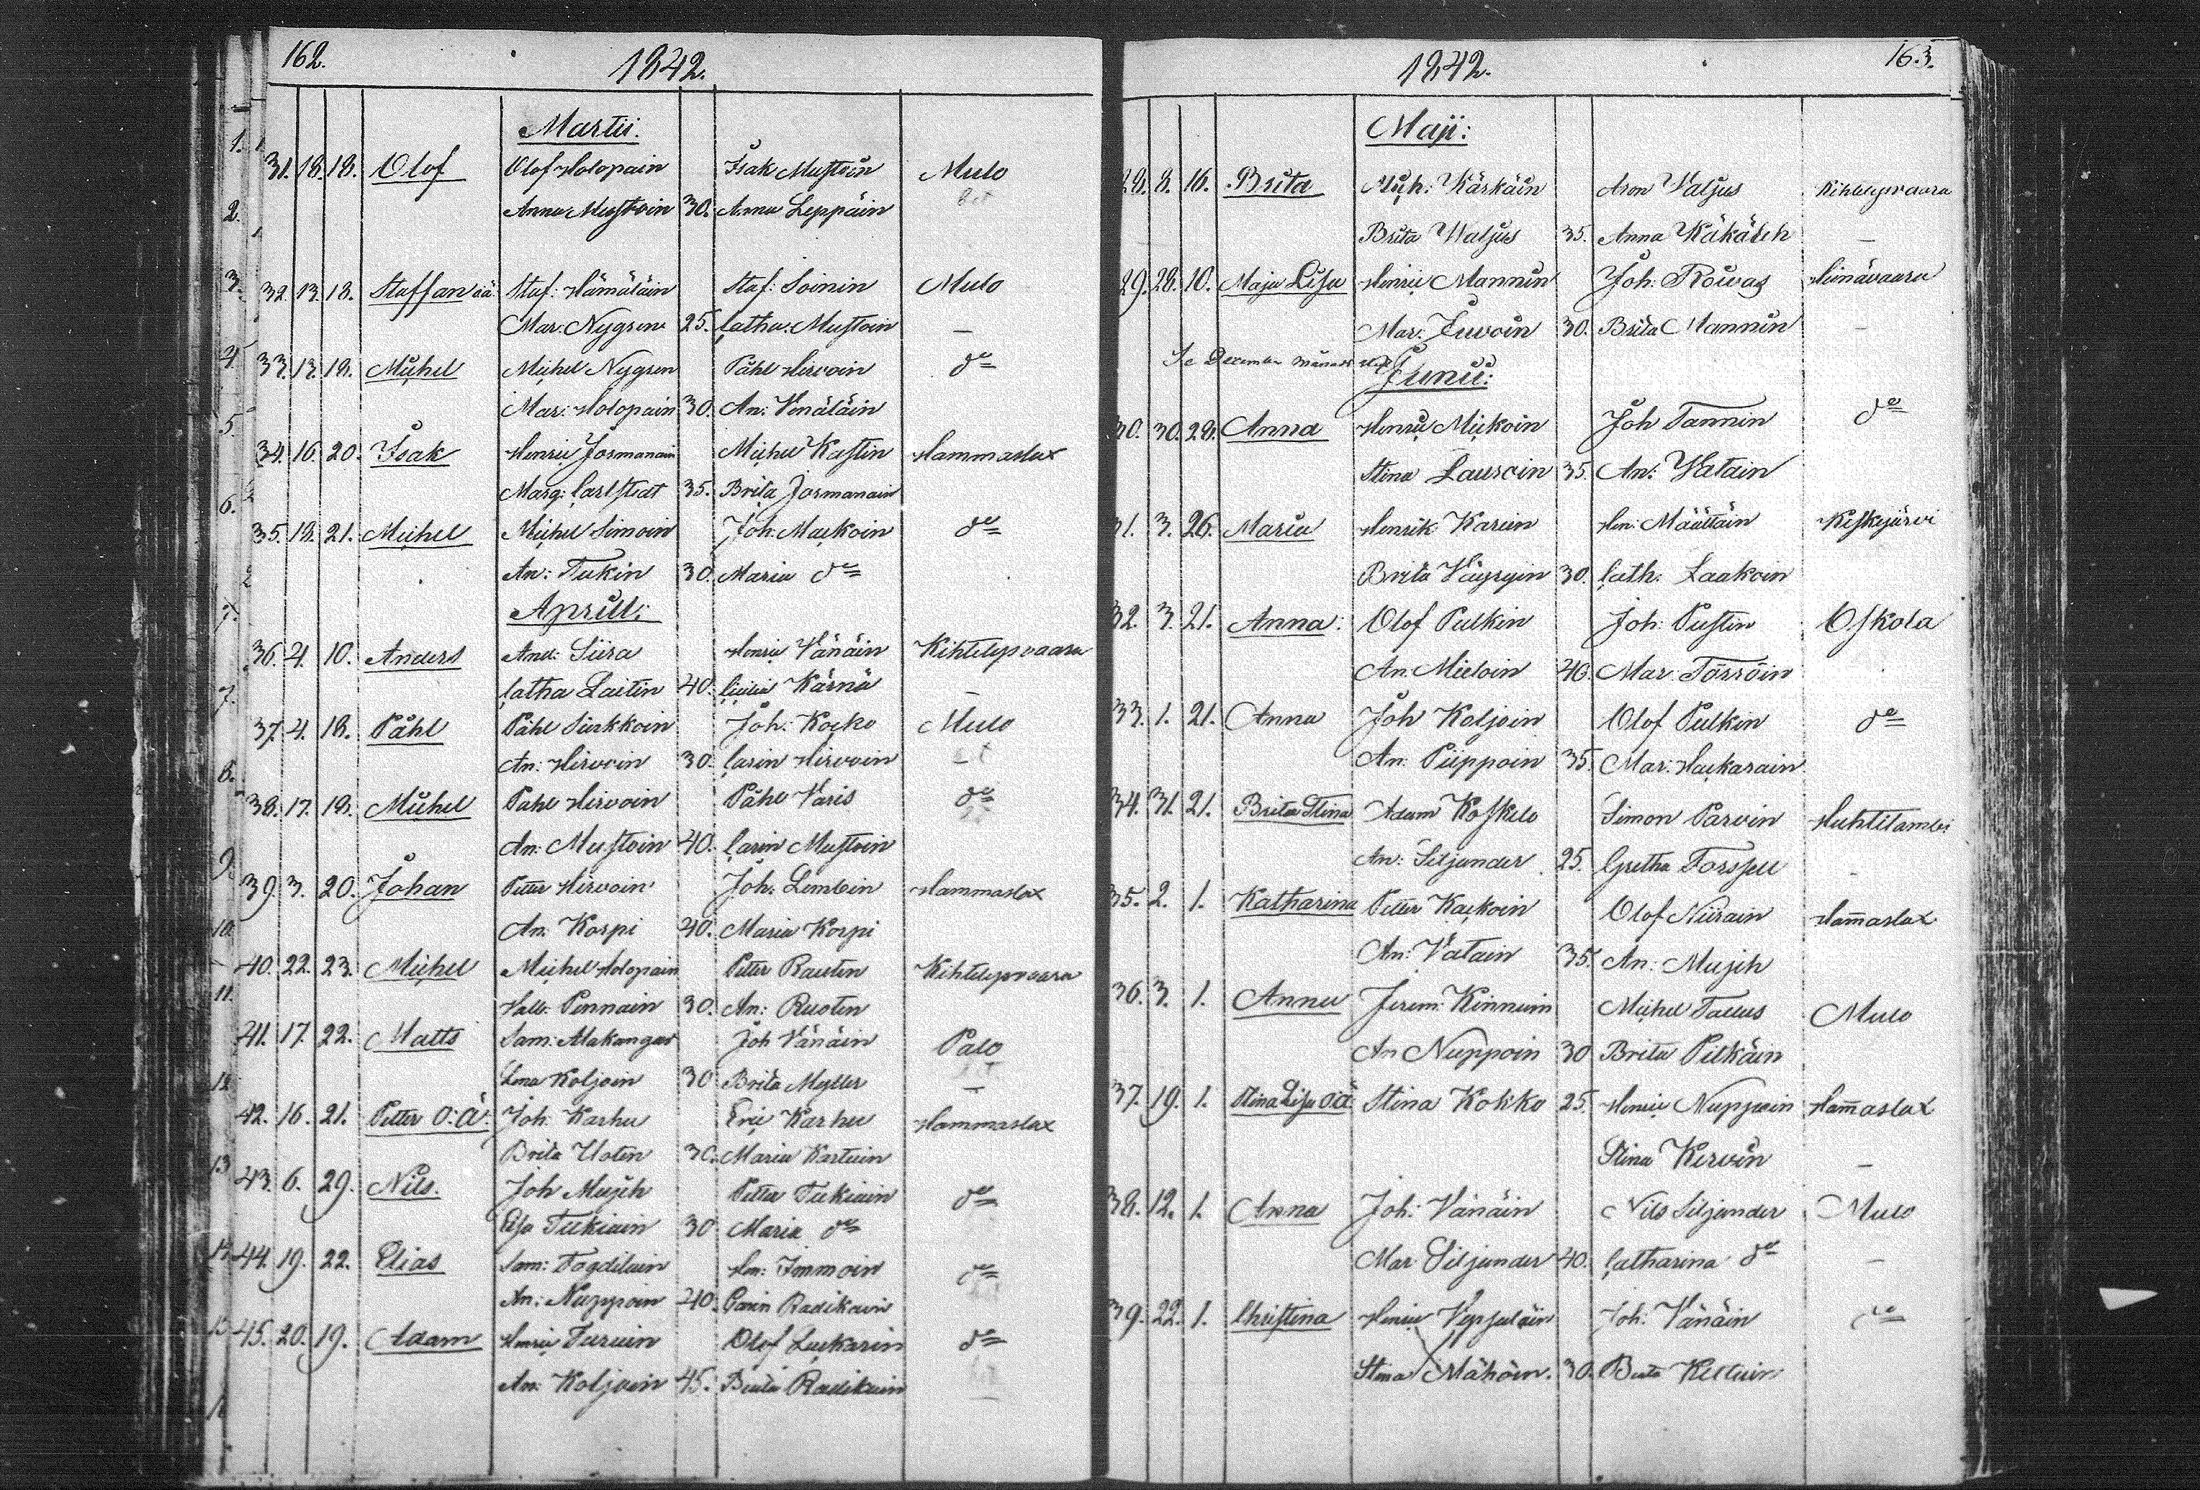 162.
1842.
Martii.
31. 18. 18. Olof Olof Holopain Isak Mustoin Mulo
Anna Mustoin 30. Anna Leppäin
32. 13. 18. Staffan oä Staf: Hämäläin Staf: Soinin Mulo
Mar: Nygren 25. Catha: Mustoin —
33. 13. 18. Michel Michel Nygren Påhl Hirvoin do
Mar: Holopain 30. An: Venäläin
34. 16. 20. Isak Henric Jormanain Michel Kastin Hammaslax
Marg: Carlstedt 35. Brita Jormanain
35. 18. 21. Michel Michel Simoin Joh: Mackoin do
An: Tukin 30. Maria do
Aprill:
36. 4. 10. Anders And: Siira Henric Vänäin Kihtelysvaara
Catha Laitin 40. Cicilia Kärnä —
37. 4. 18. Påhl Påhl Surkkoin Joh: Kocko Mulo
An: Hirvoin 30. Carin Hirvoin
38. 17. 18. Michel Påhl Hirvoin Påhl Varis do
An: Mustoin 40. Carin Mustoin
39. 3. 20. Johan Petter Hirvoin Joh: Lemboin Hammaslax
An. Korpi 40. Maria Korpi
40. 22. 23. Michel Michel Holopain Petter Rautin Kihtelysvaara
Valb: Pennain 30. An: Ruotin
41. 17. 22. Matts Sam: Alakangas Joh Vänäin Palo
Lena Koljoin 30 Brita Myller —
42. 16. 21. Petter O:Ä: Joh: Karhu Eric Karhu Hammaslax
Brita Hotin 30. Maria Kartuin
43. 6. 29. Nils. Joh Mujih Petter Tukiain do
Elsa Tukiain 30 Maria do
44. 19. 22. Elias Sam: Fogdilain Hen: Immoin do
An: Nuppoin 40. Carin Radikain
45. 20. 19. Adam Henric Turuin Olof Luckarin do
An: Koljoin 45. Beata Radikain —
163.
1842.
Maji:
8. 16. Brita Mich: Kärkäin Aron Valjus Kihtelysvaara
Brita Valjus 35. Anna Käkäleh —
29. 28. 10. Maja Lisa Henric Mannin Joh: Roivas Heinävaara
Mar: Juvoin 30. Brita Mannin —
Se December månads slut
Junii:
30. 30. 28. Anna Henric Mickoin Joh Tannin do
Stina Lauroin 35. An: Vatain
31. 3. 26. Maria Henrik Kariin Hen: Määttäin Keskijärvi
Brita Väyryin 30. Cath: Laakoin
32. 3. 21. Anna: Olof Pulkin Joh: Pustin Oskola
An. Mieloin 40. Mar: Törröin
33. 1. 21. Anna Joh Koljoin Olof Pulkin do
An: Piippoin 35. Mar: Hackarain
34. 31. 21. Brita Stina Adam Koskelo Simon Parvin Huhtilambi
An: Siljander 25. Gretha Forssell
35. 2. 1. Katharina Petter Kackoin Olof Niirain Hamaslax
An: Vatain 35. An: Mujih
36. 3. 1. Anna Jerem: Kinnuin Michel Tallus Mulo
An Nuppoin 30 Brita Pitkäin
37. 19. 1. Stina Lisa oä Stina Kokko 25. Henric Nuppoin Hamaslax
Stina Kervin —
38. 12. 1. Anna Joh: Vänäin Nils Siljander Mulo
Mar: Siljander 40. Catharina do —
39. 22. 1. Christina Henric Vepsäläin Joh: Vänäin do
Stina Mähöin. 30. Beata Keltuin